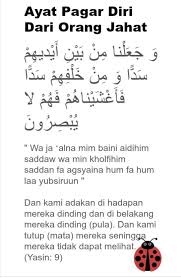 Ayat Pagar Diri
Dari Orang Jahat
وَ جَعَلْنَا مِنْ بَيْنِ أَيْدِيهِمْ
سَدًّا وَ مِنْ خَلْفِهِمْ سَدًّا
فَأَغْشَيْنَاهُمْ فَهُمْ لَا
يُبْصِرُونَ
" Wa ja 'alna mim baini aidihim
saddaw wa min kholfihim
saddan fa agsyaina hum fa hum
laa yubsiruun "
Dan kami adakan di hadapan
mereka dinding dan di belakang
mereka dinding (pula). Dan kami
tutup (mata) mereka seningga
mereka tidak dapat melihat.
(Yasin: 9)